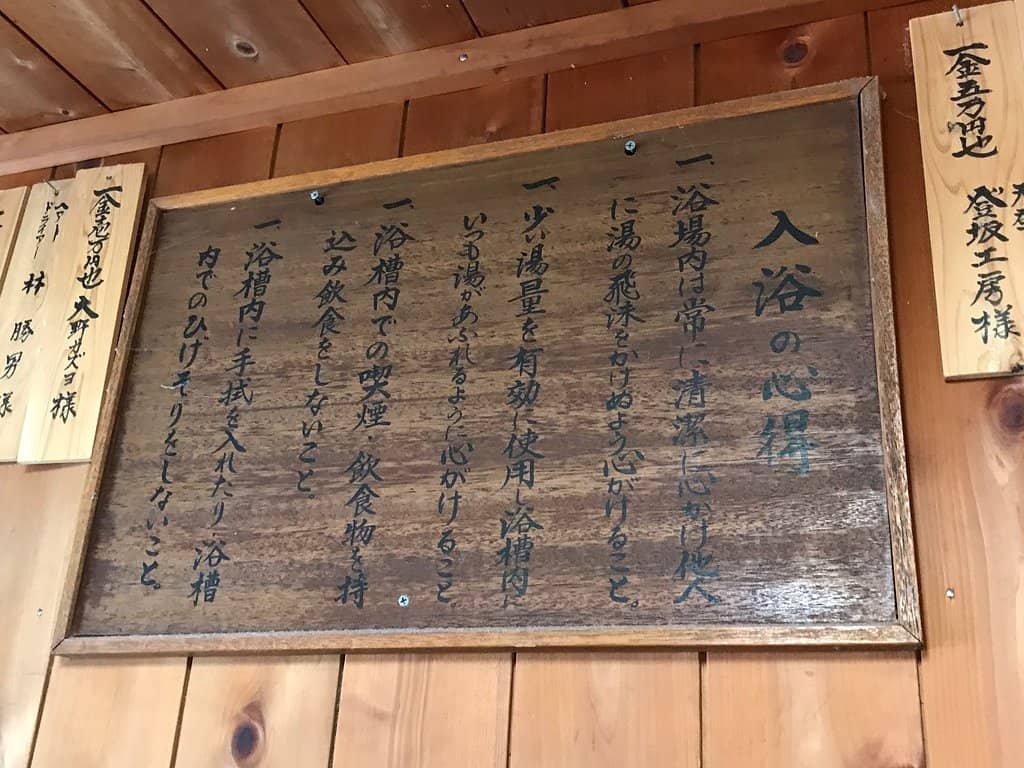 入浴の心得
一、浴場内は常に清潔に心がけ他人
に湯の飛沫をかけぬよう心がけること。
一、少い湯量を有効に使用し浴槽内に
いつも湯があふれるように心がけること。
一、浴槽内での喫煙・飲食物を持
込み飲食をしないこと。
一、浴槽内に手拭を入れたり、浴槽
内でのひげそりをしないこと。
一金五万円也
登坂工房様
一金壱万円也
大野サヅヨ様
ヘアードライアー
林 勝男様